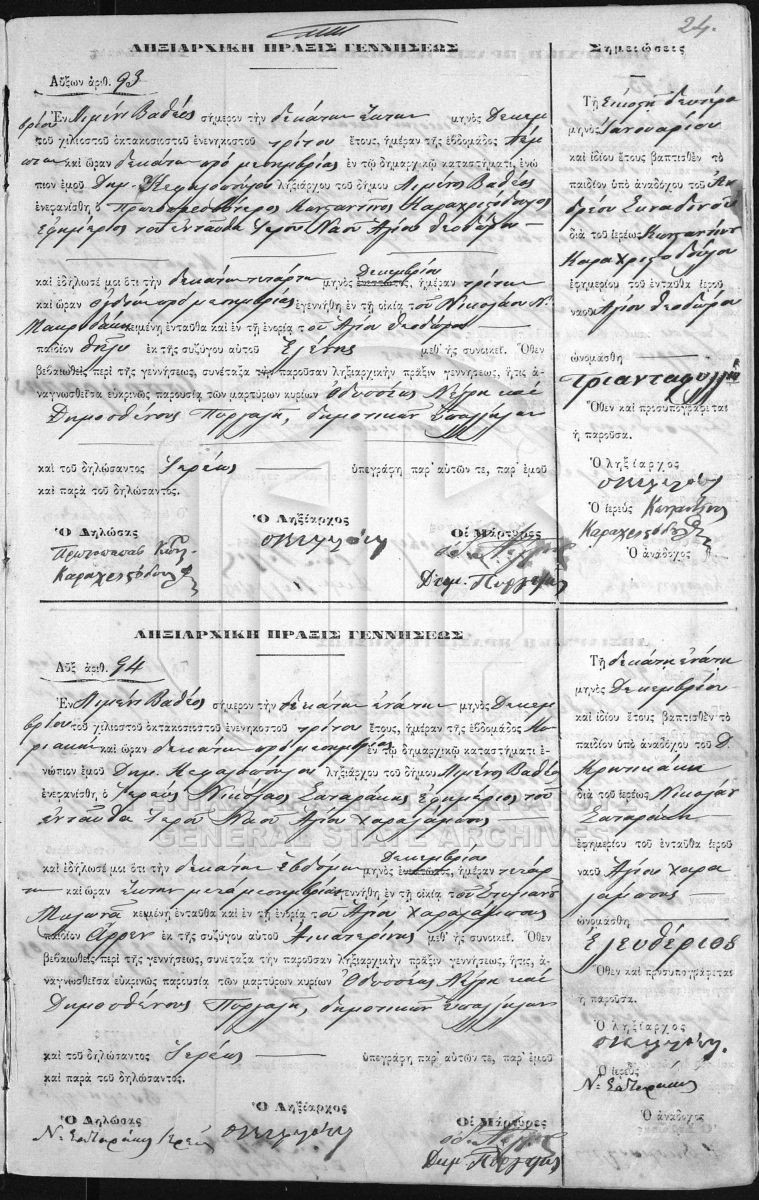 24.
ΛΗΞΙΑΡΧΙΚΗ ΠΡΑΞΙΣ ΓΕΝΝΗΣΕΩΣ
Αὔξων ἀριθ. 93
Ἐν Λιμένι Βαθέος σήμερον τὴν δεκάτην ἕκτην μηνὸς Δεκεμ
βρίου τοῦ χιλιοστοῦ ὀκτακοσιοστοῦ ἐνενηκοστοῦ τρίτου ἔτους, ἡμέραν τῆς ἑβδομάδος Πέμ
πτην καὶ ὥραν δεκάτην πρὸ μεσημβρίας ἐν τῷ δημαρχικῷ καταστήματι, ἐνώ
πιον ἐμοῦ Δημ. Κεφαλοπούλου ληξιάρχου τοῦ δήμου Λιμένος Βαθέος
ἐνεφανίσθη ὁ Πρωτοπρεσβύτερος Κωνσταντῖνος Καραχριστόδουλος
ἐφημέριος τοῦ ἐνταῦθα Ἱεροῦ Ναοῦ Ἁγίου Θεοδώρου
καὶ ἐδήλωσέ μοι ὅτι τὴν δεκάτην τετάρτην μηνὸς Δεκεμβρίου ἡμέραν τρίτην
καὶ ὥραν ὀγδόην πρὸ μεσημβρίας ἐγεννήθη ἐν τῇ οἰκίᾳ τοῦ Νικολάου Ν.
κειμένη ἐνταῦθα καὶ ἐν τῇ ἐνορίᾳ τοῦ Ἁγίου Θεοδώρου
παιδίον θῆλυ ἐκ τῆς συζύγου αὐτοῦ Ἑλένης μεθ᾽ ἧς συνοικεῖ. Ὅθεν
βεβαιωθεὶς περὶ τῆς γεννήσεως, συνέταξα τὴν παροῦσαν ληξιαρχικὴν πρᾶξιν γεννήσεως, ἥτις ἀ-
ναγνωσθεῖσα εὐκρινῶς παρουσίᾳ τῶν μαρτύρων κυρίων Ὀδυσσέως Νέγρη καὶ
Δημοσθένους Πυργαλῆ, δημοτικῶν ὑπαλλήλων
καὶ τοῦ δηλώσαντος Ἱερέως ὑπεγράφη παρ᾽ αὐτῶν τε, παρ᾽ ἐμοῦ
καὶ παρὰ τοῦ δηλώσαντος.
Ὁ Δηλώσας
Ὁ Ληξίαρχος
Οἱ Μάρτυρες
Πρωτοπαπᾶς Κων.
Καραχριστόδουλος
Δημ. Πυργαλῆς
Σημειώσεις
Τῇ Εἰκοστῇ δευτέρᾳ
μηνὸς Ἰανουαρίου
καὶ ἰδίου ἔτους βαπτισθὲν τὸ
παιδίον ὑπὸ ἀναδόχου τοῦ Ἀν
δρέου Συναδινοῦ
διὰ τοῦ ἱερέως Κωνσταντίνου
Καραχριστοδούλου
ἐφημερίου τοῦ ἐνταῦθα ἱεροῦ
ναοῦ Ἁγίου Θεοδώρου
ὠνομάσθη
Τριανταφυλλιὰ
Ὅθεν καὶ προσυπογράφεται
ἡ παροῦσα.
Ὁ ληξίαρχος
Ὁ ἱερεὺς Κωνσταντῖνος
Καραχριστόδουλος
Ὁ ἀνάδοχος
ΛΗΞΙΑΡΧΙΚΗ ΠΡΑΞΙΣ ΓΕΝΝΗΣΕΩΣ
Αὔξ ἀριθ. 94
Ἐν Λιμένι Βαθέος σήμερον τὴν δεκάτην ἐνάτην μηνὸς Δεκεμ
βρίου τοῦ χιλιοστοῦ ὀκτακοσιοστοῦ ἐνενηκοστοῦ τρίτου ἔτους, ἡμέραν τῆς ἑβδομάδος Κυ
ριακὴν καὶ ὥραν δεκάτην πρὸ μεσημβρίας ἐν τῷ δημαρχικῷ καταστήματι ἐ-
νώπιον ἐμοῦ Δημ. Κεφαλοπούλου ληξιάρχου τοῦ δήμου Λιμένος Βαθέος
ἐνεφανίσθη ὁ Ἱερεὺς Νικόλαος Σαταράκης ἐφημέριος τοῦ
ἐνταῦθα Ἱεροῦ Ναοῦ Ἁγίου Χαραλάμπους
GENERAL STATE ARCHIVES
καὶ ἐδήλωσέ μοι ὅτι τὴν δεκάτην ἑβδόμην μηνὸς Δεκεμβρίου ἡμέραν τετάρ
την καὶ ὥραν ἕκτην μετὰ μεσημβρίαν ἐγεννήθη ἐν τῇ οἰκίᾳ τοῦ Στυλιανοῦ
Μυλωνᾶ κειμένη ἐνταῦθα καὶ ἐν τῇ ἐνορίᾳ τοῦ Ἁγίου Χαραλάμπους
παιδίον ἄρρεν ἐκ τῆς συζύγου αὐτοῦ Αἰκατερίνης μεθ᾽ ἧς συνοικεῖ. Ὅθεν
βεβαιωθεὶς περὶ τῆς γεννήσεως, συνέταξα τὴν παροῦσαν ληξιαρχικὴν πρᾶξιν γεννήσεως, ἥτις, ἀ-
ναγνωσθεῖσα εὐκρινῶς παρουσίᾳ τῶν μαρτύρων κυρίων Ὀδυσσέως Νέγρη καὶ
Δημοσθένους Πυργαλῆ, δημοτικῶν ὑπαλλήλων
καὶ τοῦ δηλώσαντος Ἱερέως ὑπεγράφη παρ᾽ αὐτῶν τε, παρ᾽ ἐμοῦ
καὶ παρὰ τοῦ δηλώσαντος.
Ὁ Δηλώσας
Ὁ Ληξίαρχος
Οἱ Μάρτυρες
Ν. Σαταράκης ἱερεύς
Δημ. Πυργαλῆς
Τῇ δεκάτῃ ἐνάτῃ
μηνὸς Δεκεμβρίου
καὶ ἰδίου ἔτους βαπτισθὲν τὸ
παιδίον ὑπὸ ἀναδόχου τοῦ Δ.
διὰ τοῦ ἱερέως Νικολάου
Σαταράκη
ἐφημερίου τοῦ ἐνταῦθα ἱεροῦ
ναοῦ Ἁγίου Χαρα
λάμπους
ὠνομάσθη
Ἐλευθέριος
Ὅθεν καὶ προσυπογράφεται
ἡ παροῦσα.
Ὁ ληξίαρχος
Ὁ ἱερεὺς
Ν. Σαταράκης
Ὁ ἀνάδοχος